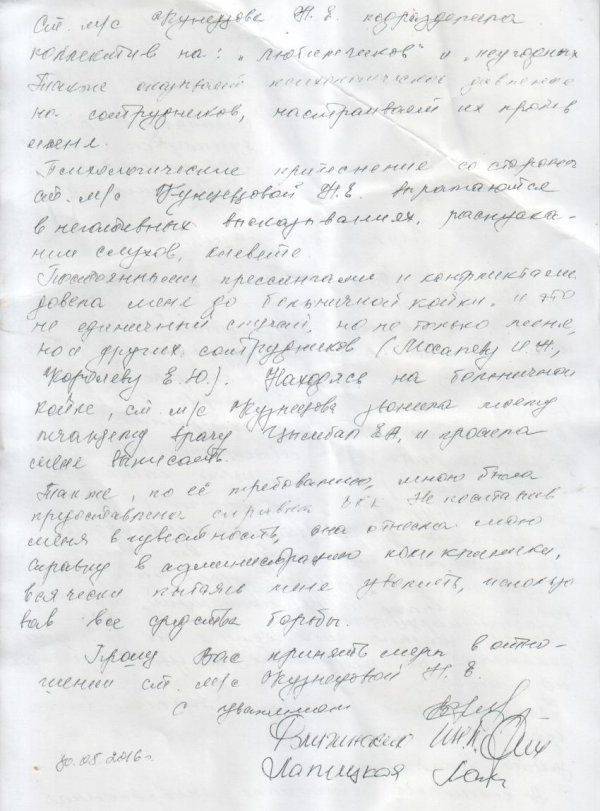 Ст. м/с Кузнецова Н. Е. подразделила
коллектив на: „любимчиков" и „неугодных
Также оказывает психологическое давление
на сотрудников, настраивает их против
меня.
Психологические притеснение со стороны
ст. м/с Кузнецовой Н.Е. выражаются
в негативных высказываниях, распуска-
нии слухов, клевете.
Постоянными прессингами и конфликтами
довела меня до больничной койки. и это
не единичный случай, но не только меня,
но и других сотрудников (Мосалеву И.Н,
Королеву Е.Ю.). Находясь на больничной
койке, ст. м/с Кузнецова звонила моему
лечащему врачу Цымбал ЕА, и просила
меня выписать.
Также, по её требованию, мною была
предоставлена справка ВКК. Не поставив
меня в известность, она отнесла мою
справку в администрацию поликлиники,
всячески пытаясь меня уволить, использо
вав все средства борьбы.
Прошу Вас принять меры в отно-
шении ст. м/с Кузнецовой Н. Е.
С уважением
Лапицкая
30.05.2016г.